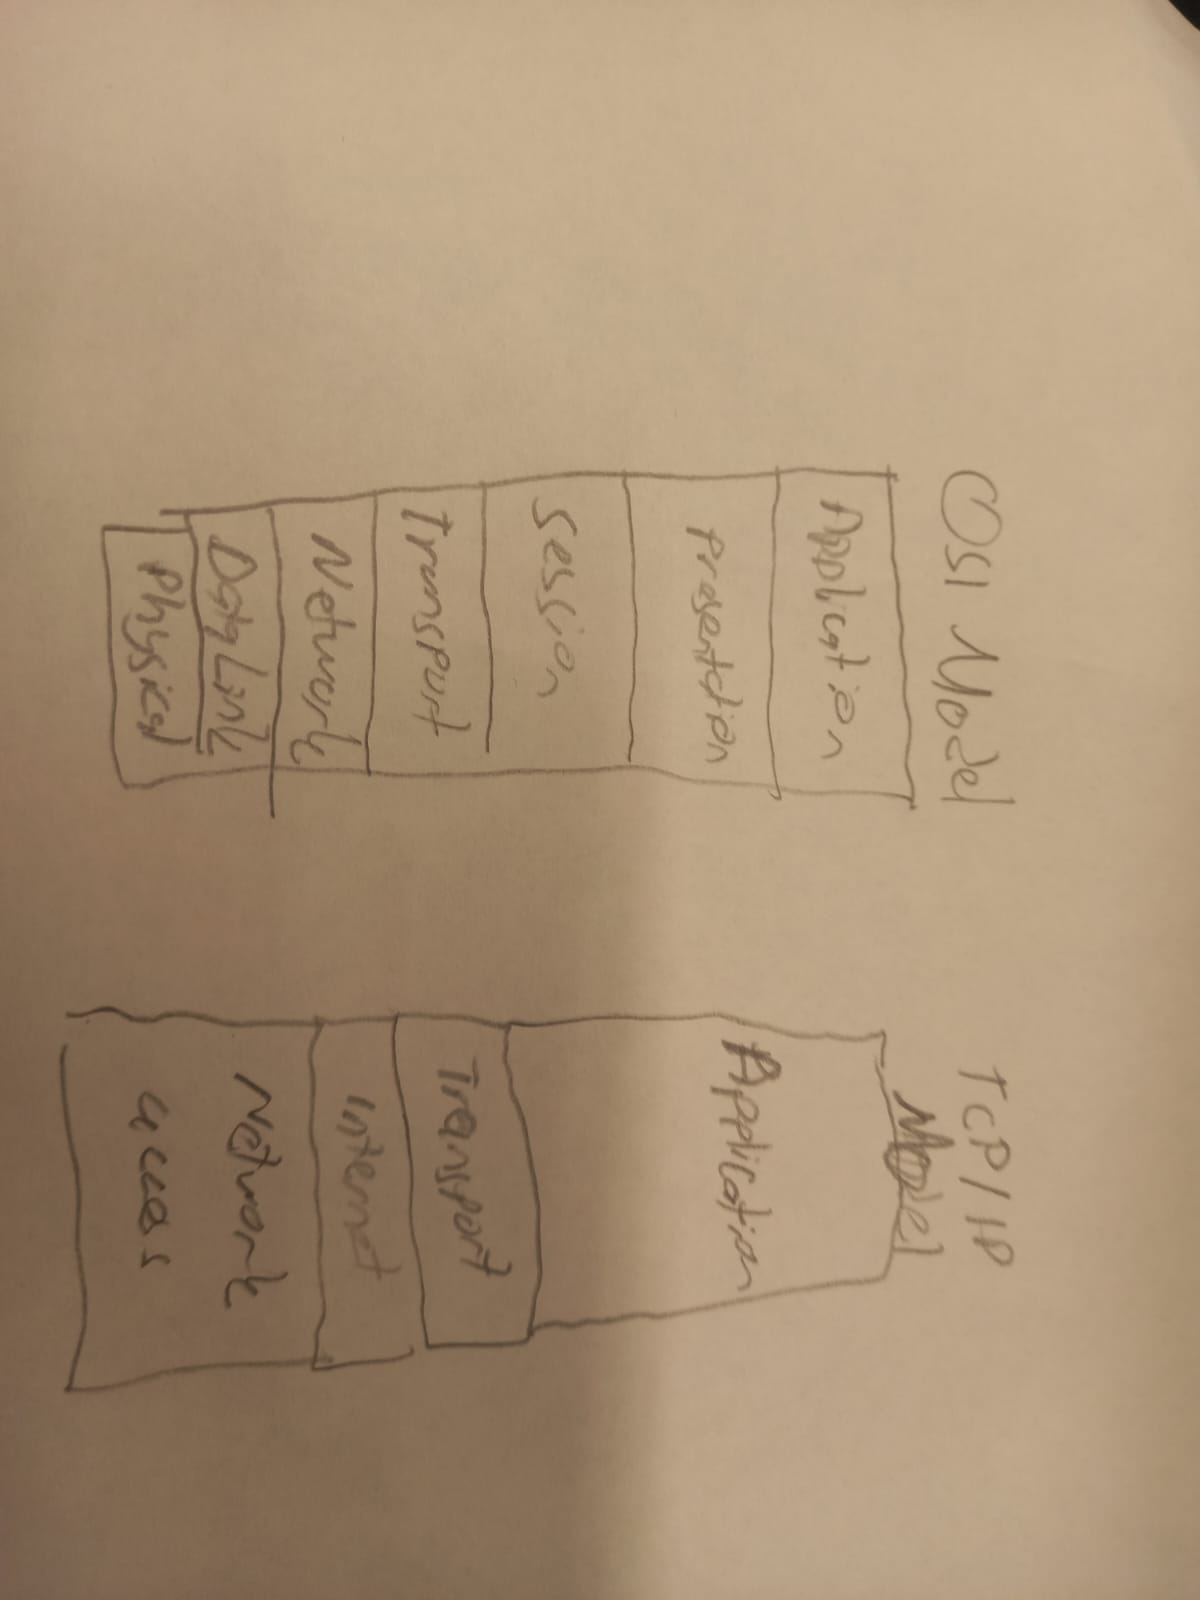 OSI Model
Application
Presentation
Session
Transport
Network
Data Link
Physical
TCP/IP
Model
Application
Transport
Internet
Network
access